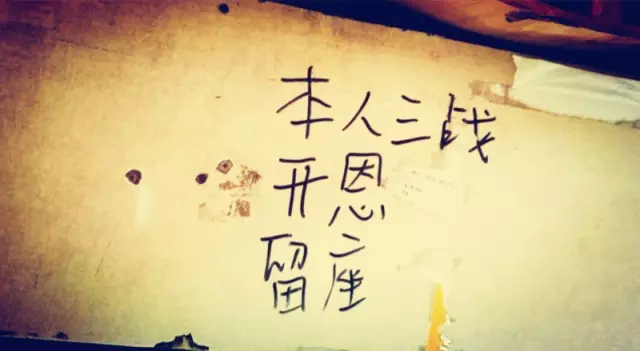 本人三战
开恩
留座